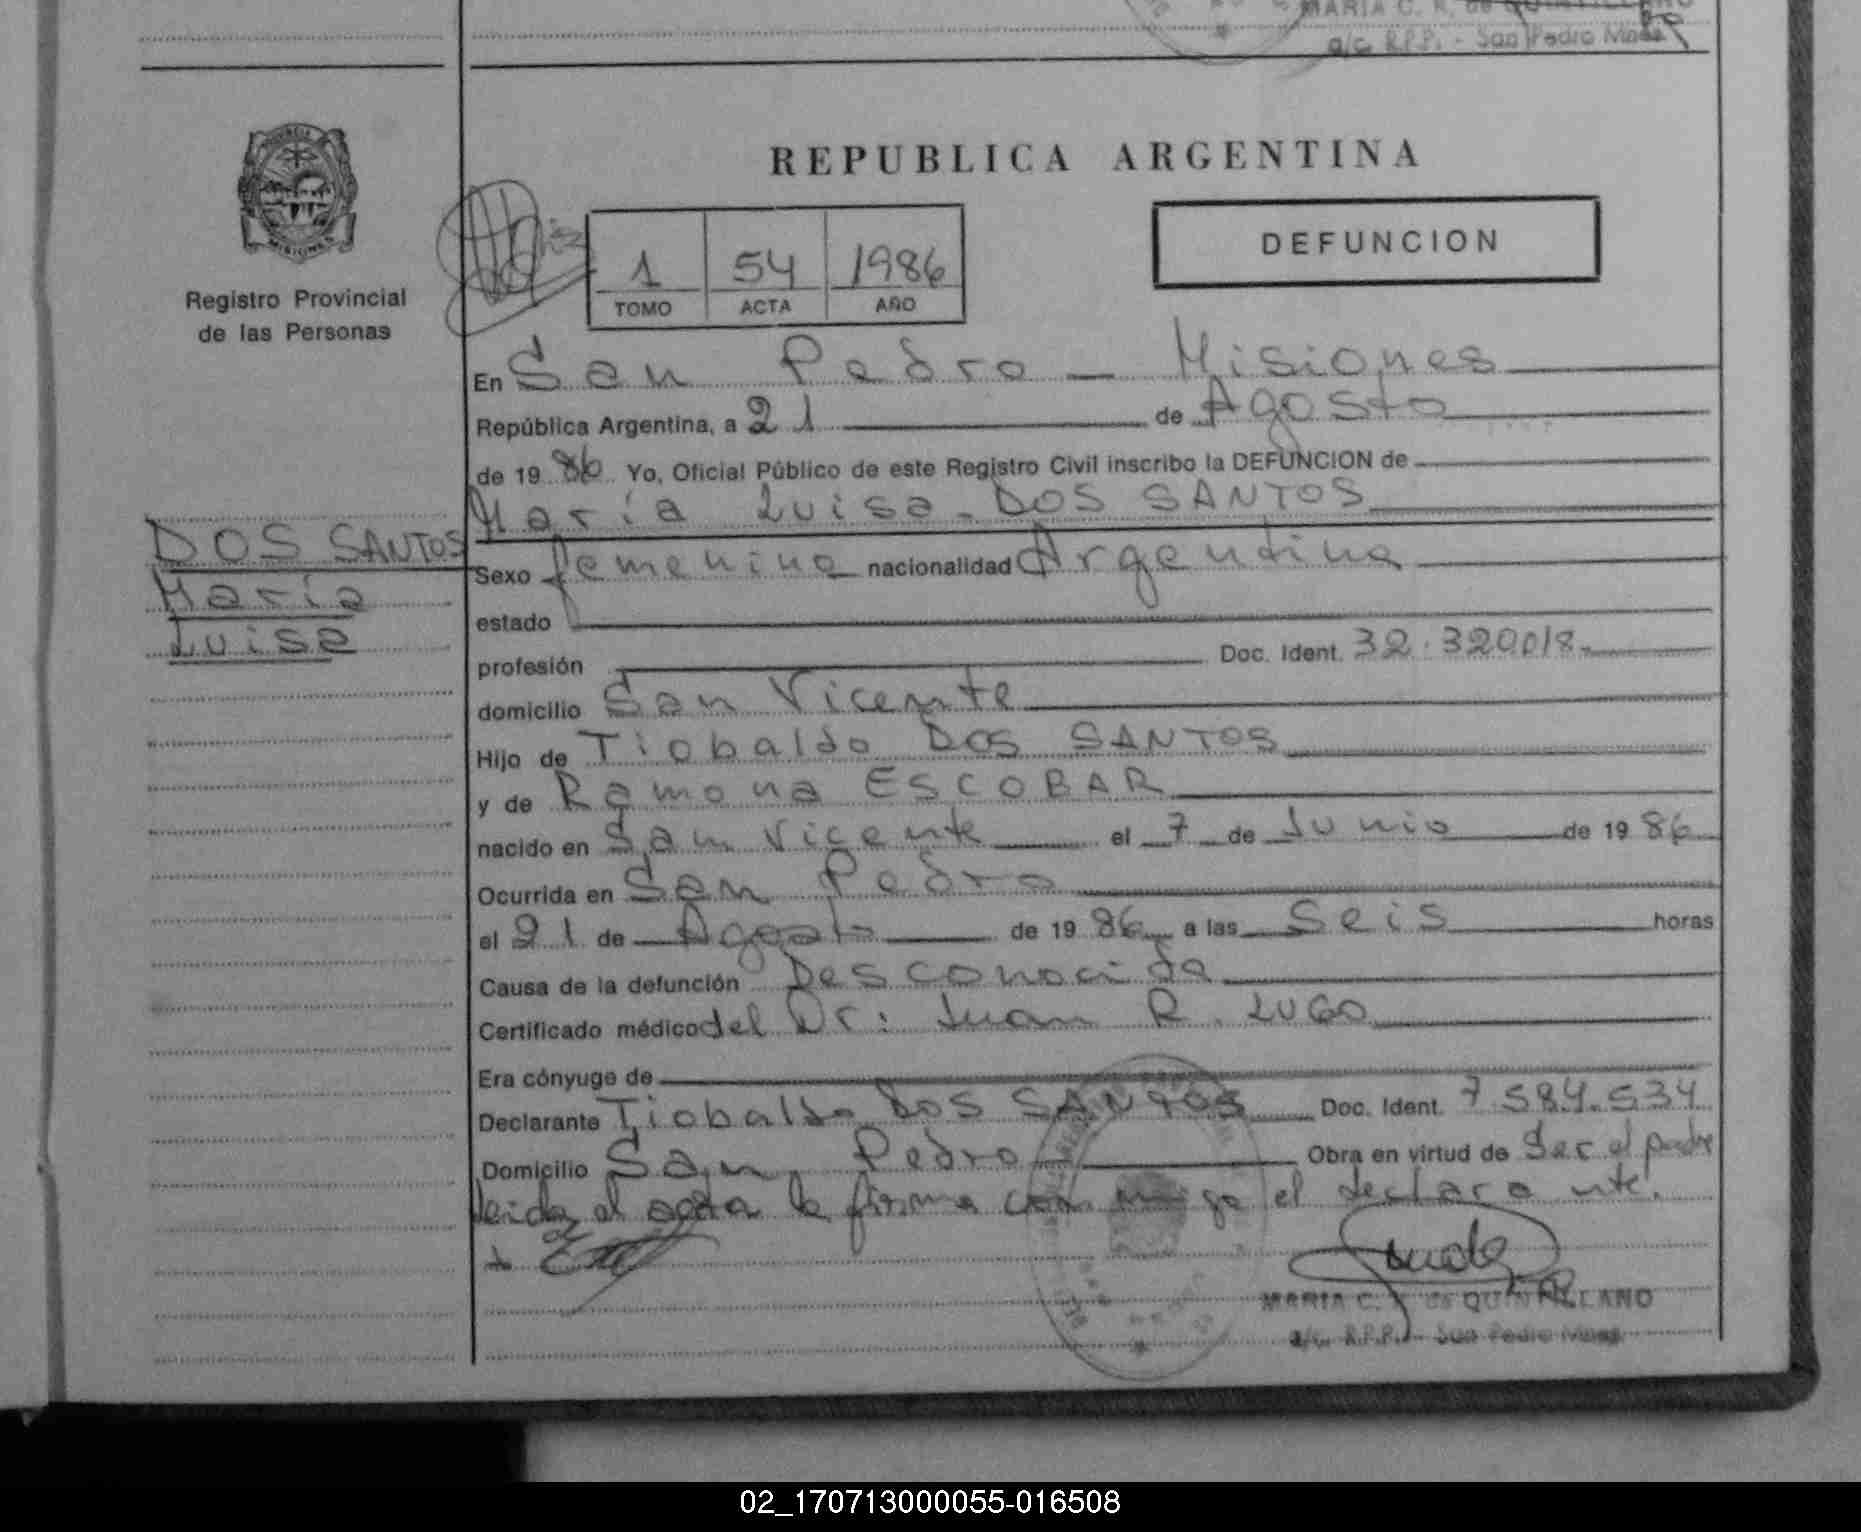 MARIA C. R. de QUINTILLANO
a/c R.P.P. - San Pedro Mnes
PROVINCIA
MISIONES
Registro Provincial
de las Personas
REPUBLICA ARGENTINA
DEFUNCION
1 54 1986
TOMO ACTA AÑO
En San Pedro - Misiones
República Argentina, a 21 de Agosto
de 19 86 Yo, Oficial Público de este Registro Civil inscribo la DEFUNCION de
María Luisa DOS SANTOS
DOS SANTOS
María
Luisa
Sexo femenino nacionalidad Argentina
estado
profesión Doc. Ident. 32.320018
domicilio San Vicente
Hijo de Tiobaldo DOS SANTOS
y de Ramona ESCOBAR
nacido en San Vicente el 7 de Junio de 19 86
Ocurrida en San Pedro
el 21 de Agosto de 19 86 a las Seis horas
Causa de la defunción Desconocida
Certificado médico del Dr: Juan R. LUGO
Era cónyuge de
Declarante Tiobaldo DOS SANTOS Doc. Ident. 7584.534
Domicilio San Pedro Obra en virtud de Ser el padre
leida el acta la firma con migo el declara nte.
MARIA C. R. de QUINTILLANO
a/c. R.P.P. - San Pedro Mnes
02_170713000055-016508